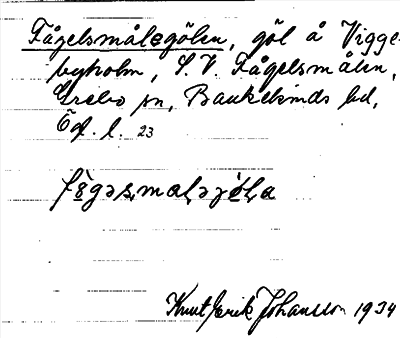 Fågelsmålsgölen, göl å Vigge-
byholm, S.V. Fågelsmålen,
Grebo sn, Bankekinds hd,
Ög. l. 23
Knut Erik Johansson 1934